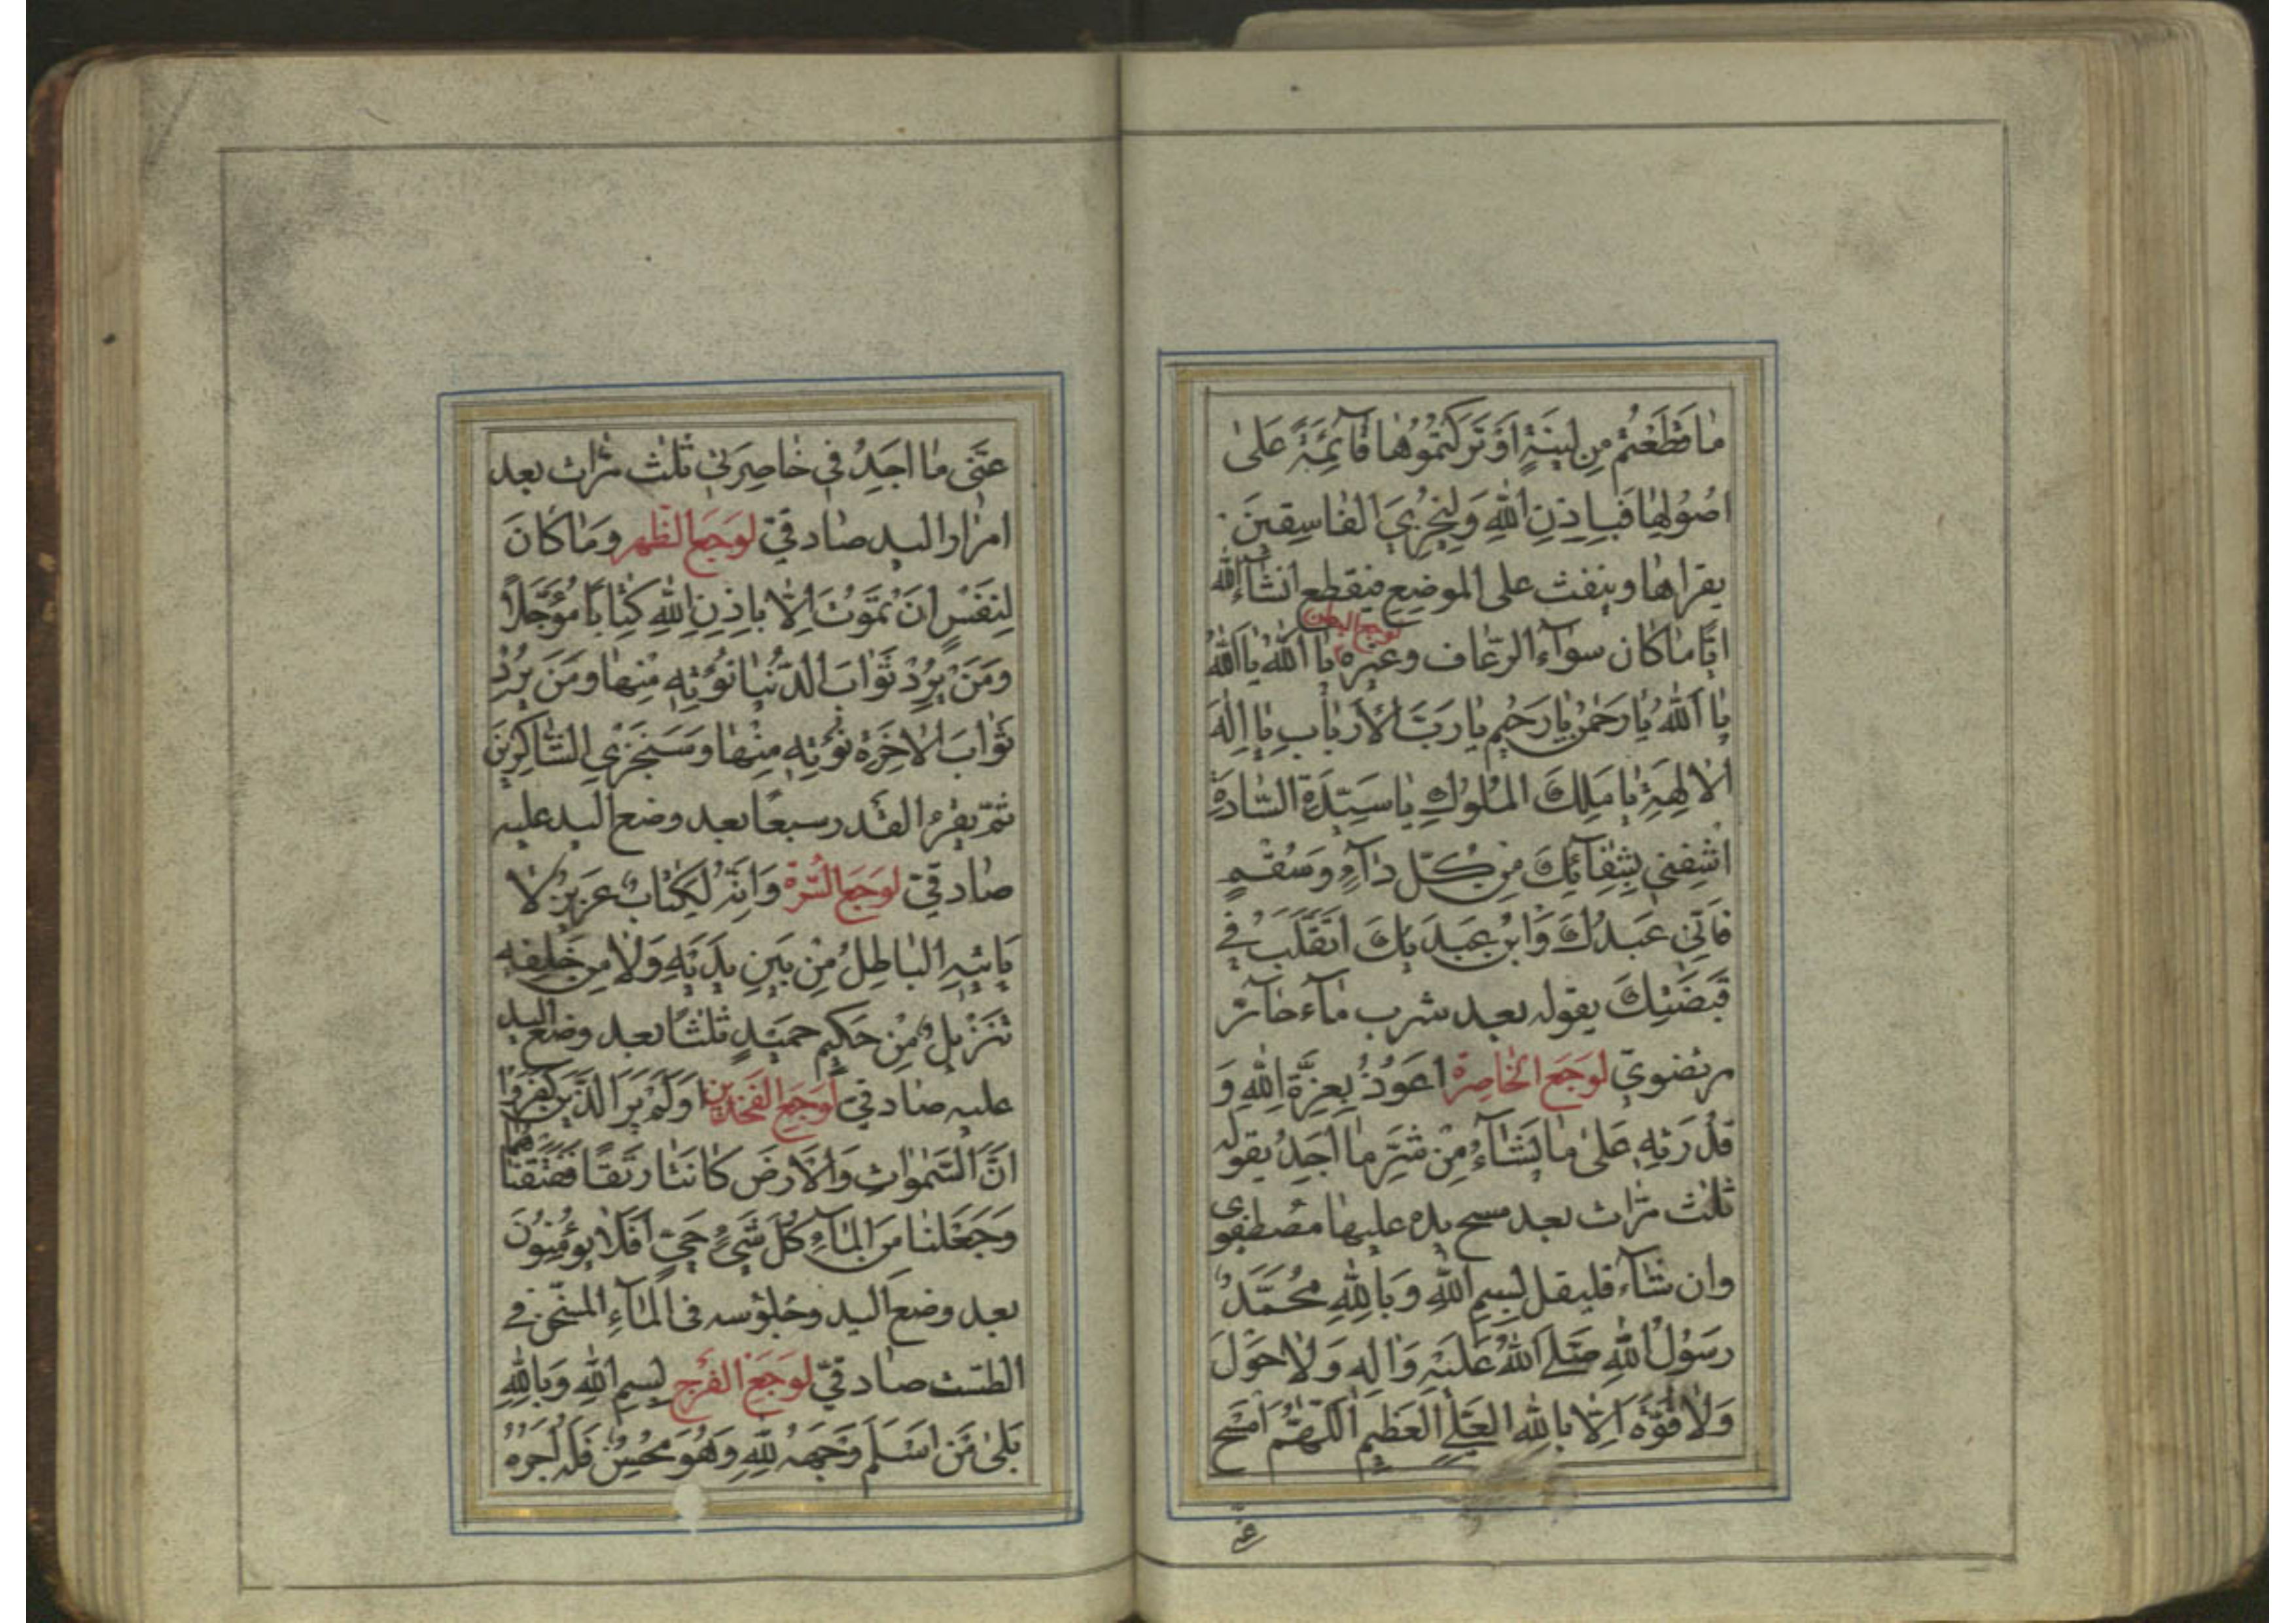 مَا قَطَعْتُمْ مِنْ لِينَةٍ اَوْ تَرَكْتُمُوهَا قَآئِمَةً عَلىٰ
اُصُولِهَا فَبِاِذْنِ اللّٰهِ وَلِيُخْزِيَ الْفَاسِقِينَ
يقراها وينفث على الموضع فينقطع انشآء الله
ايّا ما كان سوآء الرعاف وغيره لوجع البطن يٰا اَللّٰهُ يٰا اَللّٰهُ
يٰا اَللّٰهُ يٰا رَحْمٰنُ يٰا رَحِيمُ يٰا رَبَّ الْاَرْبٰابِ يٰا اِلٰهَ
الْاٰلِهَةِ يٰا مَلِكَ الْمُلُوكِ يٰا سَيِّدَ السّٰادَةِ
اشْفِنِي بِشِفٰآئِكَ مِنْ كُلِّ دٰآءٍ وَسُقْمٍ
فَاِنّي عَبْدُكَ وَابْنُ عَبْدَيْكَ اَتَقَلَّبُ فِي
قَبْضَتِكَ يقوله بعد شرب مآء حآرّ
مرتضويّ لوجع الخاصرة اَعُوذُ بِعِزَّةِ اللّٰهِ وَ
قُدْرَتِهِ عَلىٰ مٰا يَشٰآءُ مِنْ شَرِّ مٰا اَجِدُ يقوله
ثلث مرّات بعد مسح يده عليها مصطفوى
وان شآء فليقل بِسْمِ اللّٰهِ وَبِاللّٰهِ مُحَمَّدٌ
رَسُولُ اللّٰهِ صَلَّى اللّٰهُ عَلَيْهِ وَاٰلِهِ وَلٰا حَوْلَ
وَلٰا قُوَّةَ اِلّٰا بِاللّٰهِ الْعَلِيِّ الْعَظِيمِ اَللّٰهُمَّ امْسَحْ
عنّى
عَنّي مٰا اَجِدُ فِي خٰاصِرَتِي ثلث مرّات بعد
امرار اليد صادقيّ لوجع الظهر وَمٰا كٰانَ
لِنَفْسٍ اَنْ تَمُوتَ اِلّٰا بِاِذْنِ اللّٰهِ كِتٰابًا مُؤَجَّلًا
وَمَنْ يُرِدْ ثَوٰابَ الدُّنْيٰا نُؤْتِهِ مِنْهٰا وَمَنْ يُرِدْ
ثَوٰابَ الْاٰخِرَةِ نُؤْتِهِ مِنْهٰا وَسَنَجْزِي الشّٰاكِرِينَ
ثمّ يقرء القدر سبعًا بعد وضع اليد عليه
صادقيّ لوجع السّرة وَاِنَّهُ لَكِتٰابٌ عَزِيزٌ لٰا
يَأْتِيهِ الْبٰاطِلُ مِنْ بَيْنِ يَدَيْهِ وَلٰا مِنْ خَلْفِهِ
تَنْزِيلٌ مِنْ حَكِيمٍ حَمِيدٍ ثلثًا بعد وضع اليد
عليه صادقيّ لوجع الفخذين اَوَلَمْ يَرَ الَّذِينَ كَفَرُوا
اَنَّ السَّمٰوٰاتِ وَالْاَرْضَ كٰانَتٰا رَتْقًا فَفَتَقْنٰاهُمٰا
وَجَعَلْنٰا مِنَ الْمٰآءِ كُلَّ شَيْءٍ حَيٍّ اَفَلٰا يُؤْمِنُونَ
بعد وضع اليد وجلوسه فى المآء المسخّن فى
الطست صادقيّ لوجع الفرج بِسْمِ اللّٰهِ وَبِاللّٰهِ
بَلىٰ مَنْ اَسْلَمَ وَجْهَهُ لِلّٰهِ وَهُوَ مُحْسِنٌ فَلَهُ اَجْرُهُ